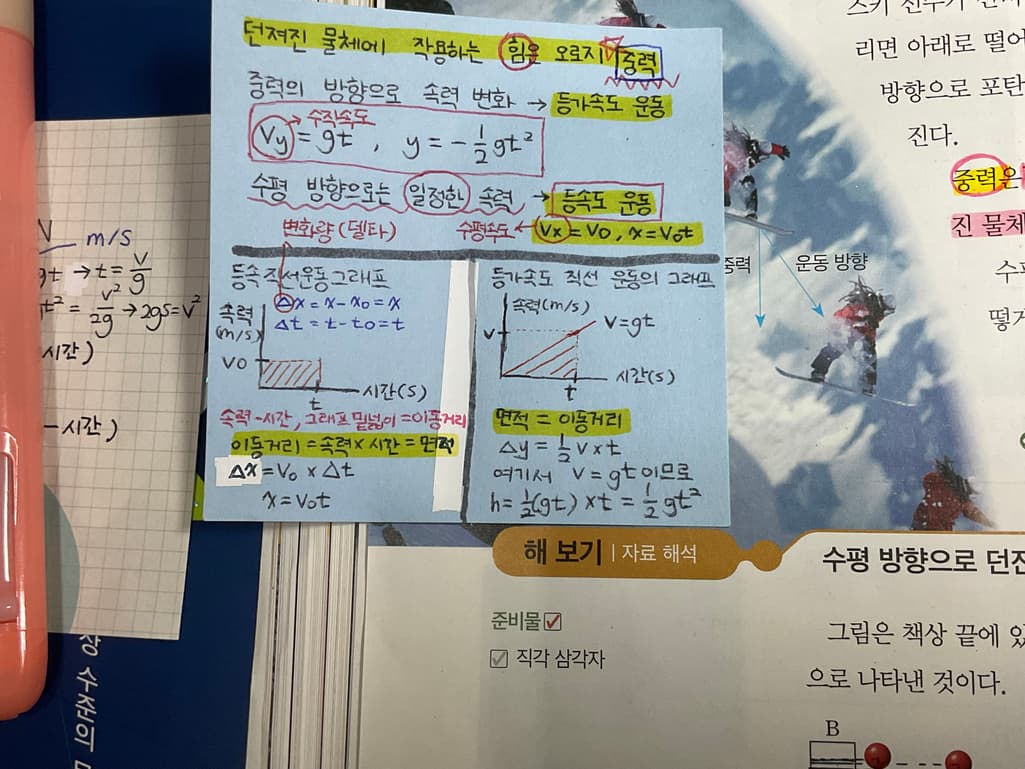 던져진 물체에 작용하는 힘은 오로지 중력
중력의 방향으로 속력 변화 → 등가속도 운동
→ 수직속도
Vy = gt , y = -½gt²
수평 방향으로는 일정한 속력 → 등속도 운동
변화량 (델타)
수평속도 ← Vx = V0, x = V0t
등속 직선운동 그래프
Δx = x - x0 = x
Δt = t - t0 = t
속력
(m/s)
V0
시간(s)
t
속력-시간, 그래프 밑넓이 = 이동거리
이동거리 = 속력 x 시간 = 면적
Δx = V0 x Δt
x = V0t
등가속도 직선 운동의 그래프
속력(m/s)
V
V = gt
시간(s)
t
면적 = 이동거리
Δy = ½ v x t
여기서 V = gt 이므로
h = ½(gt) x t = ½gt²
V m/s
gt → t = v/g
t² = v²/2g → 2gs = v²
시간)
-시간)
상 수준의
리면 아래로 떨어
방향으로 포탄
진다.
중력은
진 물체
수
떻게
중력
운동 방향
해 보기 | 자료 해석
수평 방향으로 던진
준비물
직각 삼각자
그림은 책상 끝에 있
으로 나타낸 것이다.
B